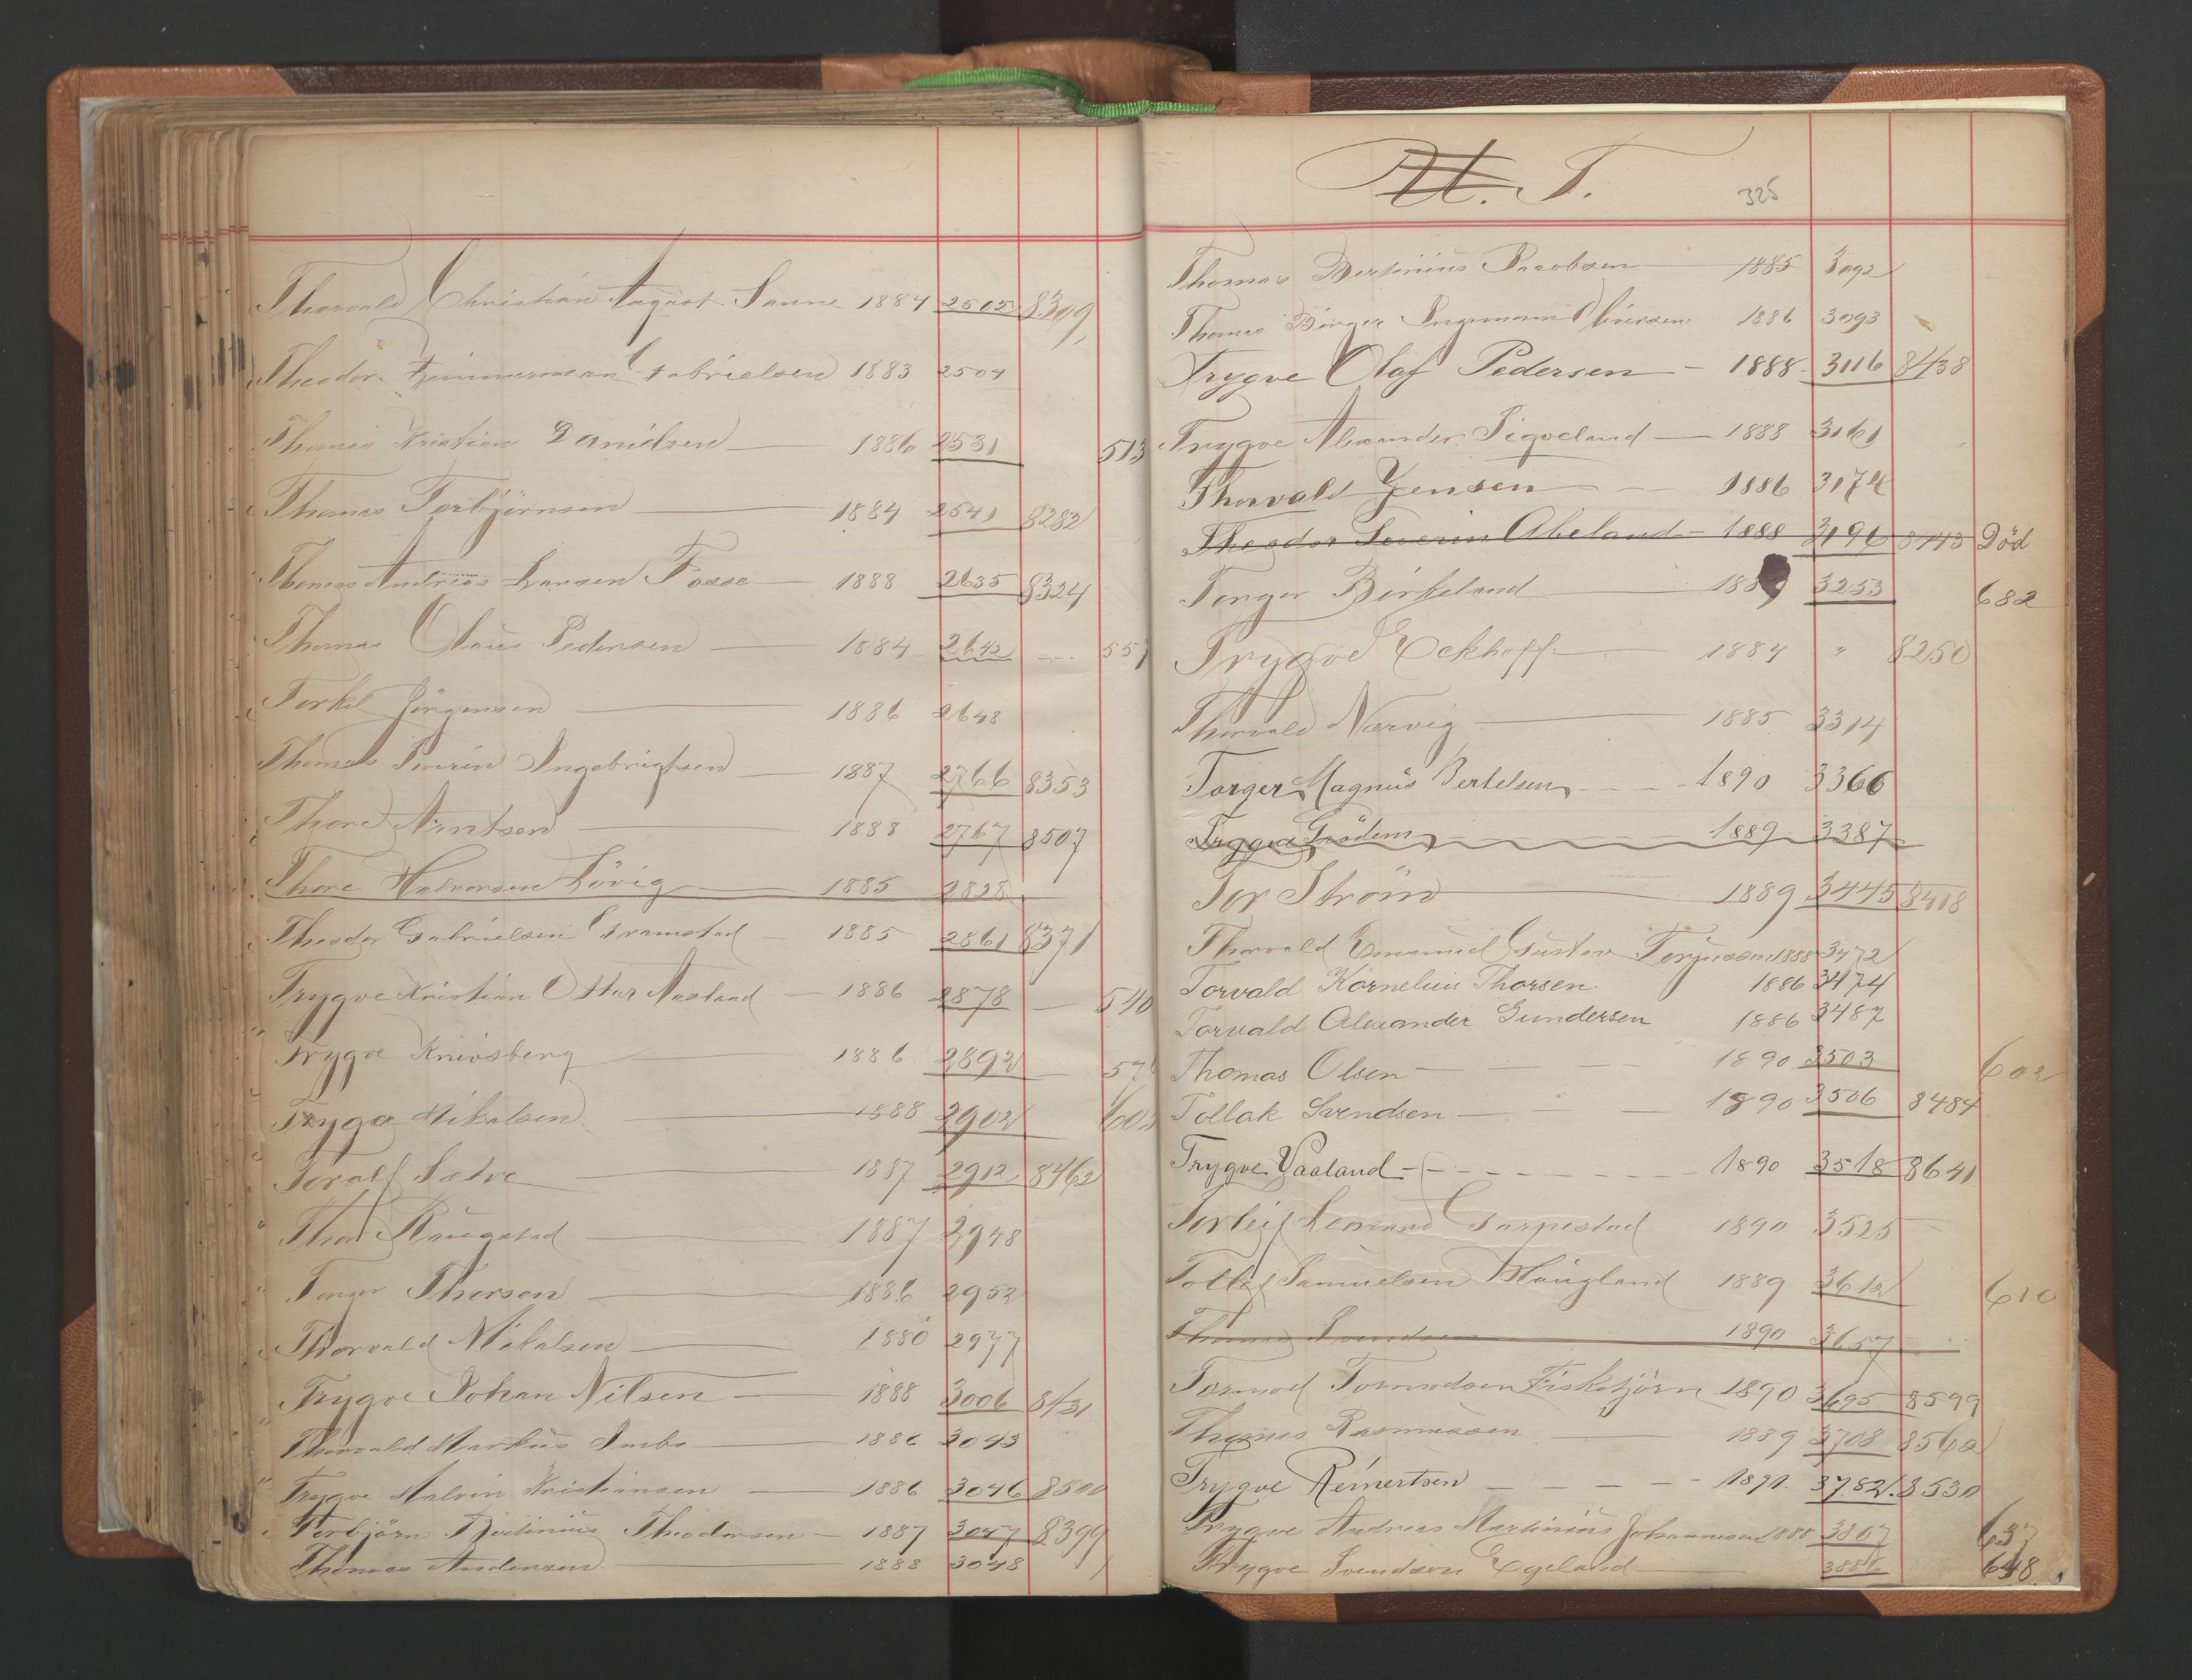 Thorvald Christian August Sanne 1884 2505 8309
Theodor Zimmerman Gabrielsen 1883 2504
Thomas Kristian Danielsen 1886 2531 513
Thomas Torbjörnsen 1884 2541 8282
Thomas Andreas Larsen Fosse 1888 2635 8324
Thomas Olaus Pedersen 1884 2642 551
Torkel Jörgensen 1886 2648
Thomas Severin Ingebrigtsen 1887 2766 8353
Thore 1888 2767 8507
Thore Halvorsen Lövig 1885 2828
Theodor Gabrielsen Gramstad 1885 2861 8371
Trygve Kristian Ottar Aasland 1886 2878 540
Trygve Knivsberg 1886 2892
Trygve Mikalsen 1888 2902
Toralf Sætre 1887 2912 8462
Thor Haugstad 1887 2948
Torger Thorsen 1886 2952
Thorvald Mikalsen 1880 2977
Trygve Johan Nilsen 1888 3006 8431
Thorvald Markus 1886 3043
Trygve Malvin Kristiansen 1886 3046 8500
Torbjörn Bertinius Theodorsen 1887 3047 8399
Thomas Andersen 1888 3048
U. T.
325
Thomas Bertinius Jacobsen 1885 3092
Thomas Birger Ingemann Iversen 1886 3093
Trygve Olaf Pedersen 1888 3116 8438
Trygve Alexander Sigveland 1888 3161
Thorvald Jensen 1886 3174
Theodor Severin Abeland 1888 3196 8143 Död
Torger Birkeland 1889 3253 682
Trygve Eckhoff 1884 " 8250
Thorvald Nærvig 1885 3314
Torger Magnus Bertelsen 1890 3366
Trygve Grödem 1889 3387
Tor Ström 1889 3445 8418
Thorvald Emanuel Gustav Terjussen 1888 3472
Torvald Kornelius Thorsen 1886 3474
Torvald Alexander Gundersen 1886 3487
Thomas Olsen 1890 3503 602
Tollak Svendsen 1890 3506 8484
Trygve Vaaland 1890 3518 8641
Torleif Leonard Garpestad 1890 3525
Tollef Samuelsen Haugland 1889 3612 610
Thomas Svendsen 1890 3657
Tormod Tormodsen Fisketjörn 1890 3695 8599
Thomas Rasmussen 1889 3708 8562
Trygve Reinertsen 1891 3782 8530
Trygve Andreas Martinius Johannesen 1888 3807 637
Trygve Svendsen Egeland 3886 648